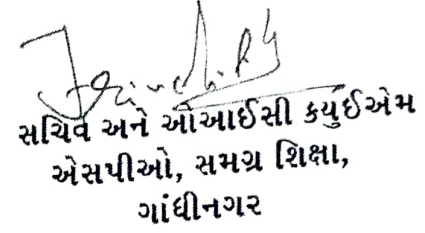 સચિવ અને ઓઆઈસી ક્યુઈએમ
એસપીઓ, સમગ્ર શિક્ષા,
ગાંધીનગર